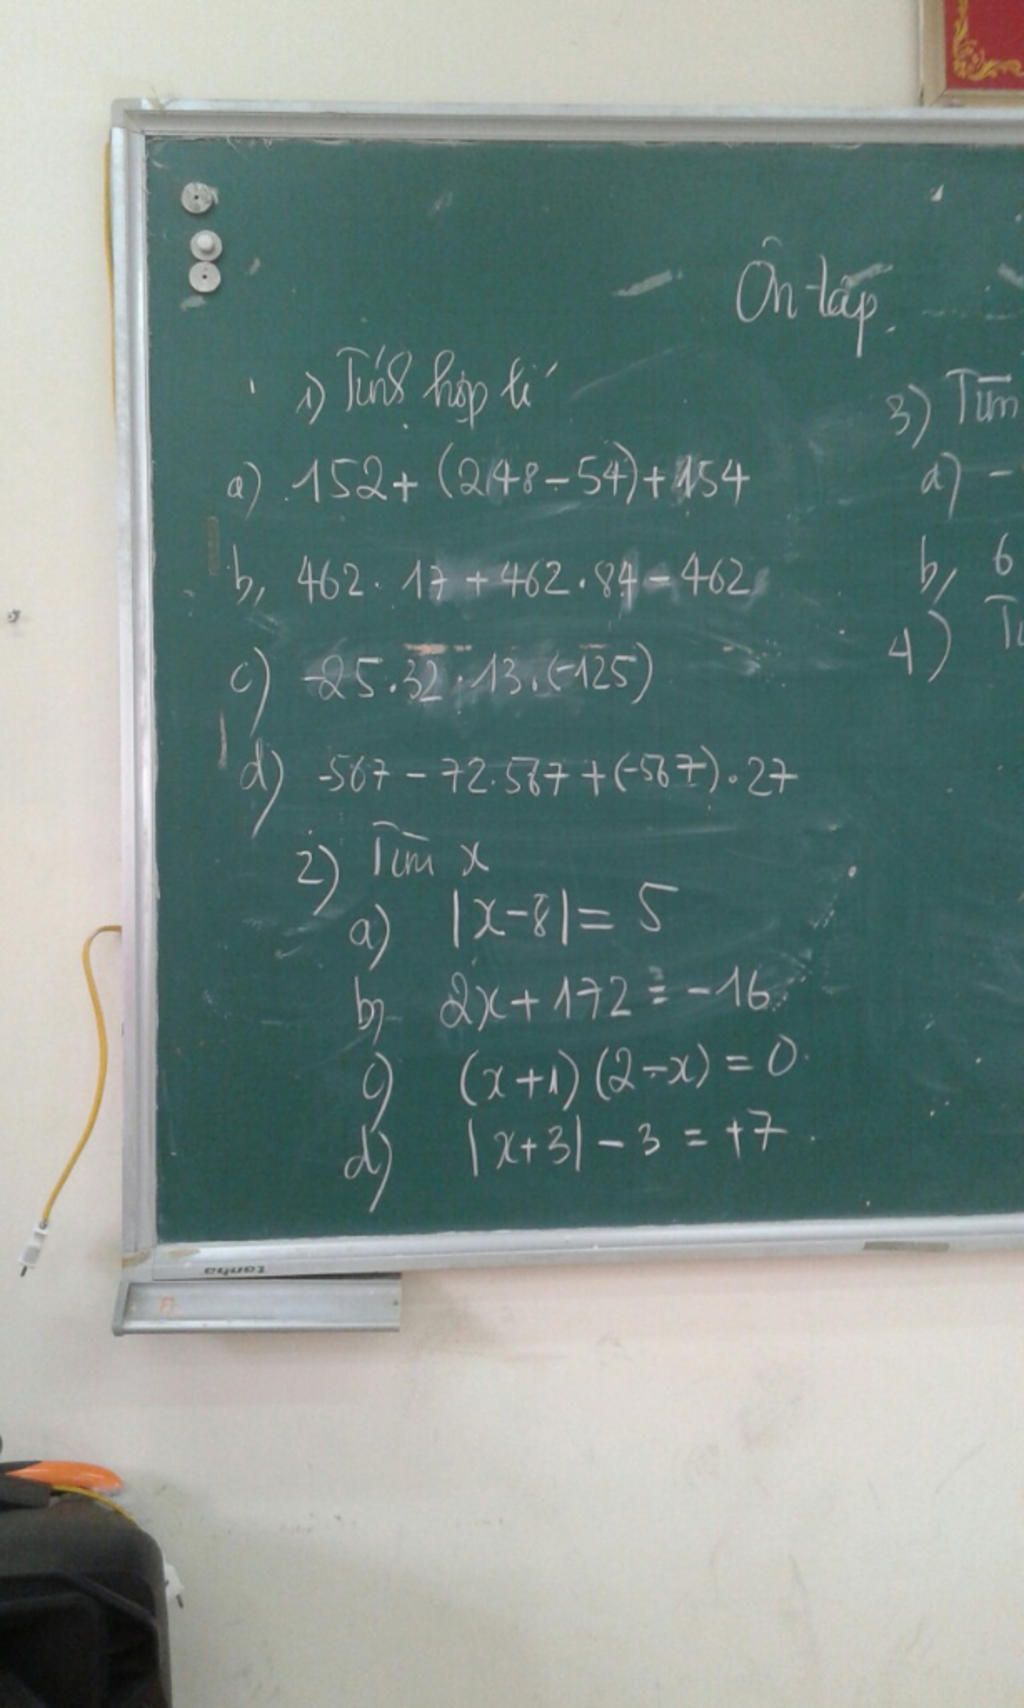 Ôn tập.
1) Tính hợp lí
a) 152 + (248 - 54) + 154
b, 462 . 17 + 462 . 84 - 462
c) -25 . 32 . 13 . (-125)
d) -567 - 72 . 567 + (-567) . 27
2) Tìm x
a) |x - 8| = 5
b) 2x + 172 = -16
c) (x + 1) (2 - x) = 0
d) |x + 3| - 3 = +7
3) Tìm
a) -
b, 6
4)
tanha